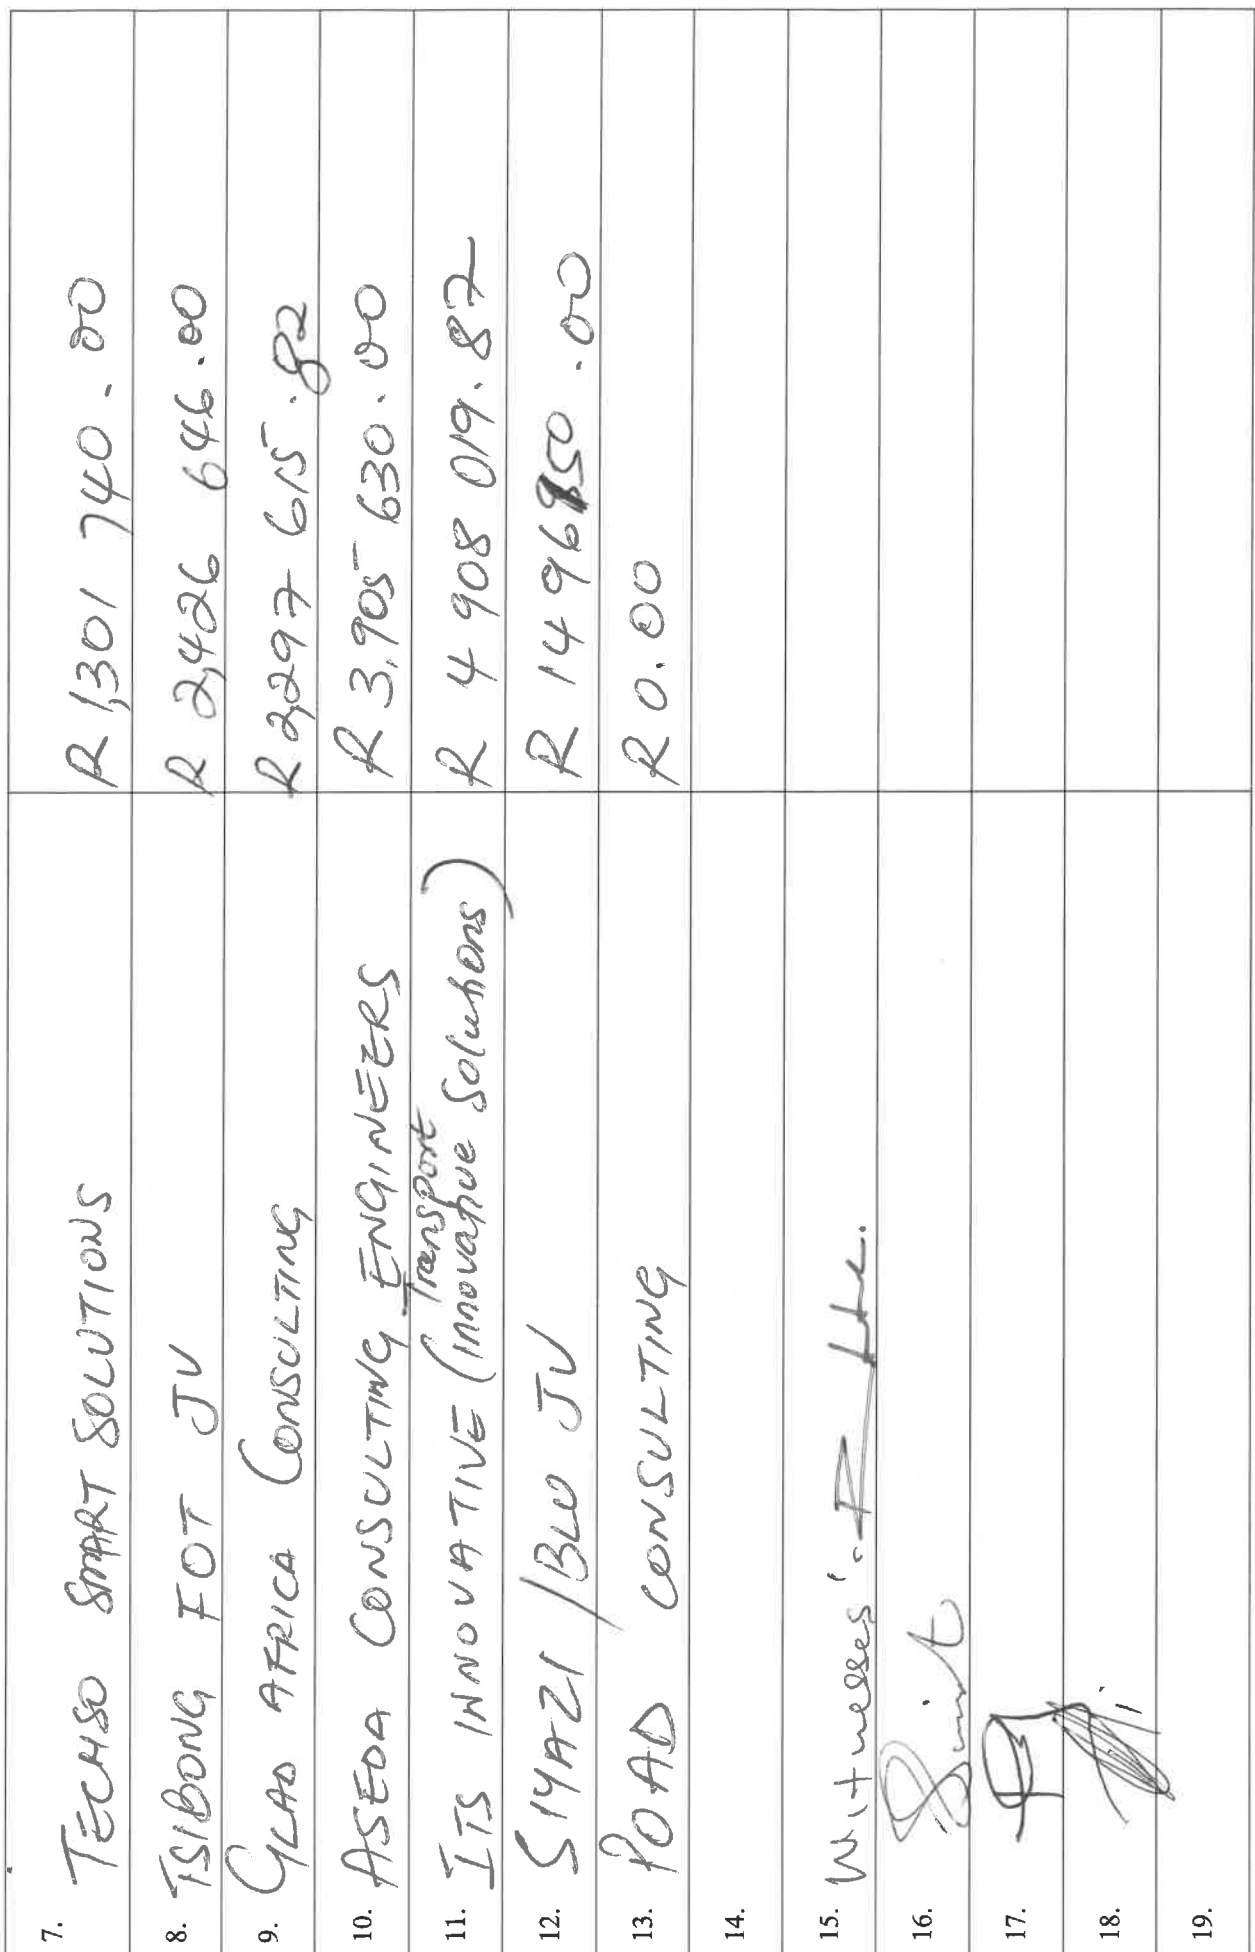 7. TECHSO SMART SOLUTIONS R 1,301 740.00
8. TSIBONG FOT JV R 2,426 646.00
9. GLAD AFRICA CONSULTING R 2,297 615.82
10. ASEDA CONSULTING ENGINEERS R 3,905 630.00
Transport
11. ITS INNOVATIVE (Innovative Solutions) R 4 908 019.87
12. SIYAZI / BLU JV R 14 96850.00
13. POAD CONSULTING R 0.00
14.
15. Witnesses:
16.
17.
18.
19.